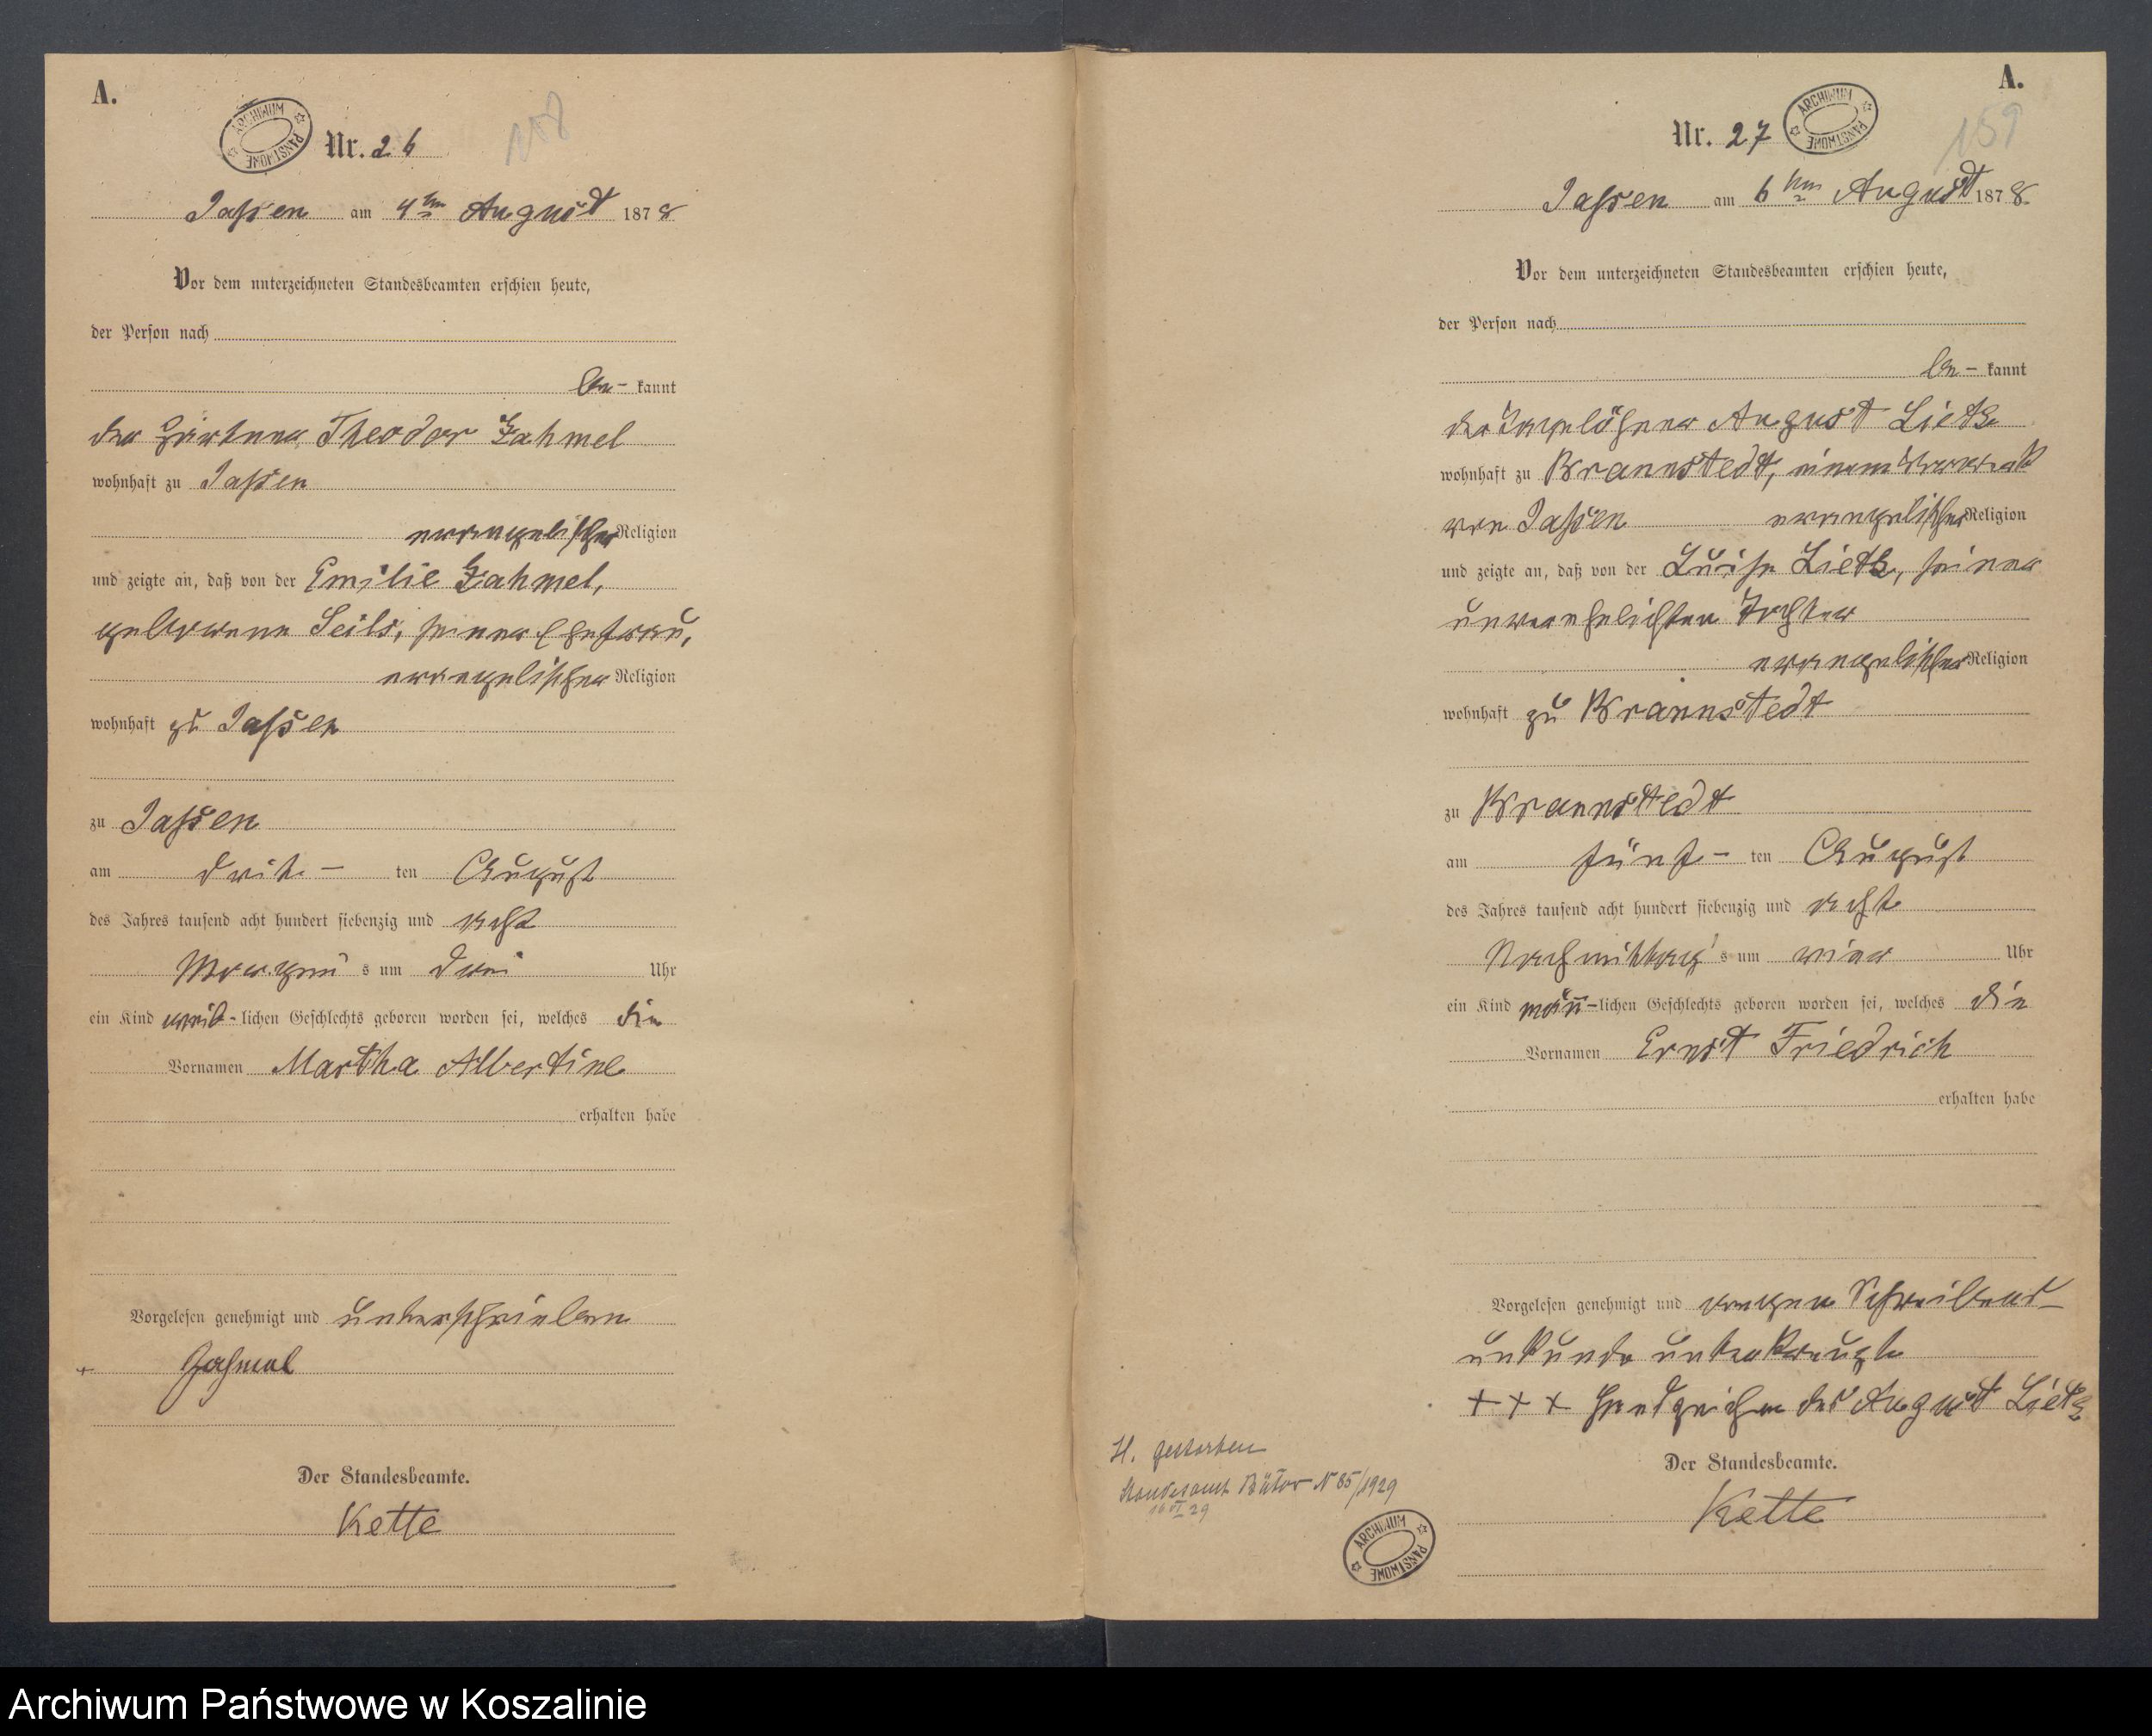 A.
ARCHIWUM PAŃSTWOWE
Nr. 26
158
Jassen am 4ten August 1878
Vor dem unterzeichneten Standesbeamten erschien heute,
der Person nach
be- kannt
der Gärtner Theodor Zahmel
wohnhaft zu Jassen
evangelischer Religion
und zeigte an, daß von der Emilie Zahmel,
geborenen Seils, seiner Ehefrau,
evangelischer Religion
wohnhaft zu Jassen
zu Jassen
am drit- ten August
des Jahres tausend acht hundert siebenzig und acht
Morgens um drei Uhr
ein Kind weib-lichen Geschlechts geboren worden sei, welches die
Vornamen Martha Albertine
erhalten habe
Vorgelesen genehmigt und unterschrieben
Zahmel
Der Standesbeamte.
Kette
A.
Nr. 27
ARCHIWUM PAŃSTWOWE
159
Jassen am 6ten August 1878
Vor dem unterzeichneten Standesbeamten erschien heute,
der Person nach
be- kannt
der Tagelöhner August Lietz
wohnhaft zu Brannstedt, einem Vorwerk
von Jassen evangelischer Religion
und zeigte an, daß von der Luise Lietz, seiner
unverehelichten Tochter
evangelischer Religion
wohnhaft zu Brannstedt
zu Brannstedt
am fünf- ten August
des Jahres tausend acht hundert siebenzig und acht
Nachmittags um vier Uhr
ein Kind männ-lichen Geschlechts geboren worden sei, welches die
Vornamen Ernst Friedrich
erhalten habe
Vorgelesen genehmigt und wegen Schreibens-
unkunde unterkreuzt
+++ Handzeichen des August Lietz
Der Standesbeamte.
Kette
H. gestorben
Standesamt Bütow N 85/1929
ARCHIWUM PAŃSTWOWE
Archiwum Państwowe w Koszalinie